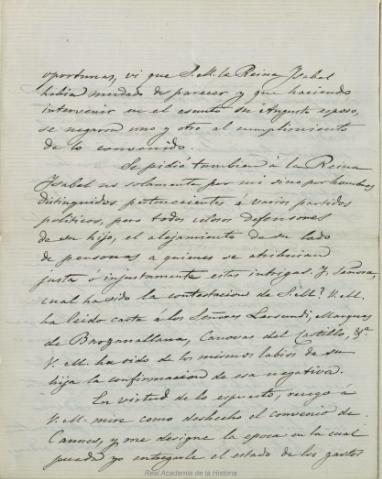 oportunas, vi que S. M. la Reina Isabel
habia mudado de parecer y que haciendo
intervenir en el asunto su Augusto esposo,
se negaron uno y otro al cumplimiento
de lo convenido.
Se pidió tambien á la Reina
Isabel no solamente por mi sino por hombres
distinguidos pertenecientes á varios partidos
políticos, pero todos celosos defensores
de su hijo, el alejamiento de su lado
de personas a quienes se atribuian
justa ó injustamente estas intrigas. Y, Señora,
cual ha sido la contestacion de S. M.? V. M.
ha leido carta á los Señores Lersundi, Marques
de Barzanallana, Canovas del Castillo, &ª
V. M. ha oido de los mismos labios de su
hija la confirmacion de esa negativa.
En virtud de lo expuesto, ruego á
V. M. mire como deshecho el convenio de
Cannes, y me designe la epoca en la cual
pueda yo entregarle el estado de los gastos
Real Academia de la Historia